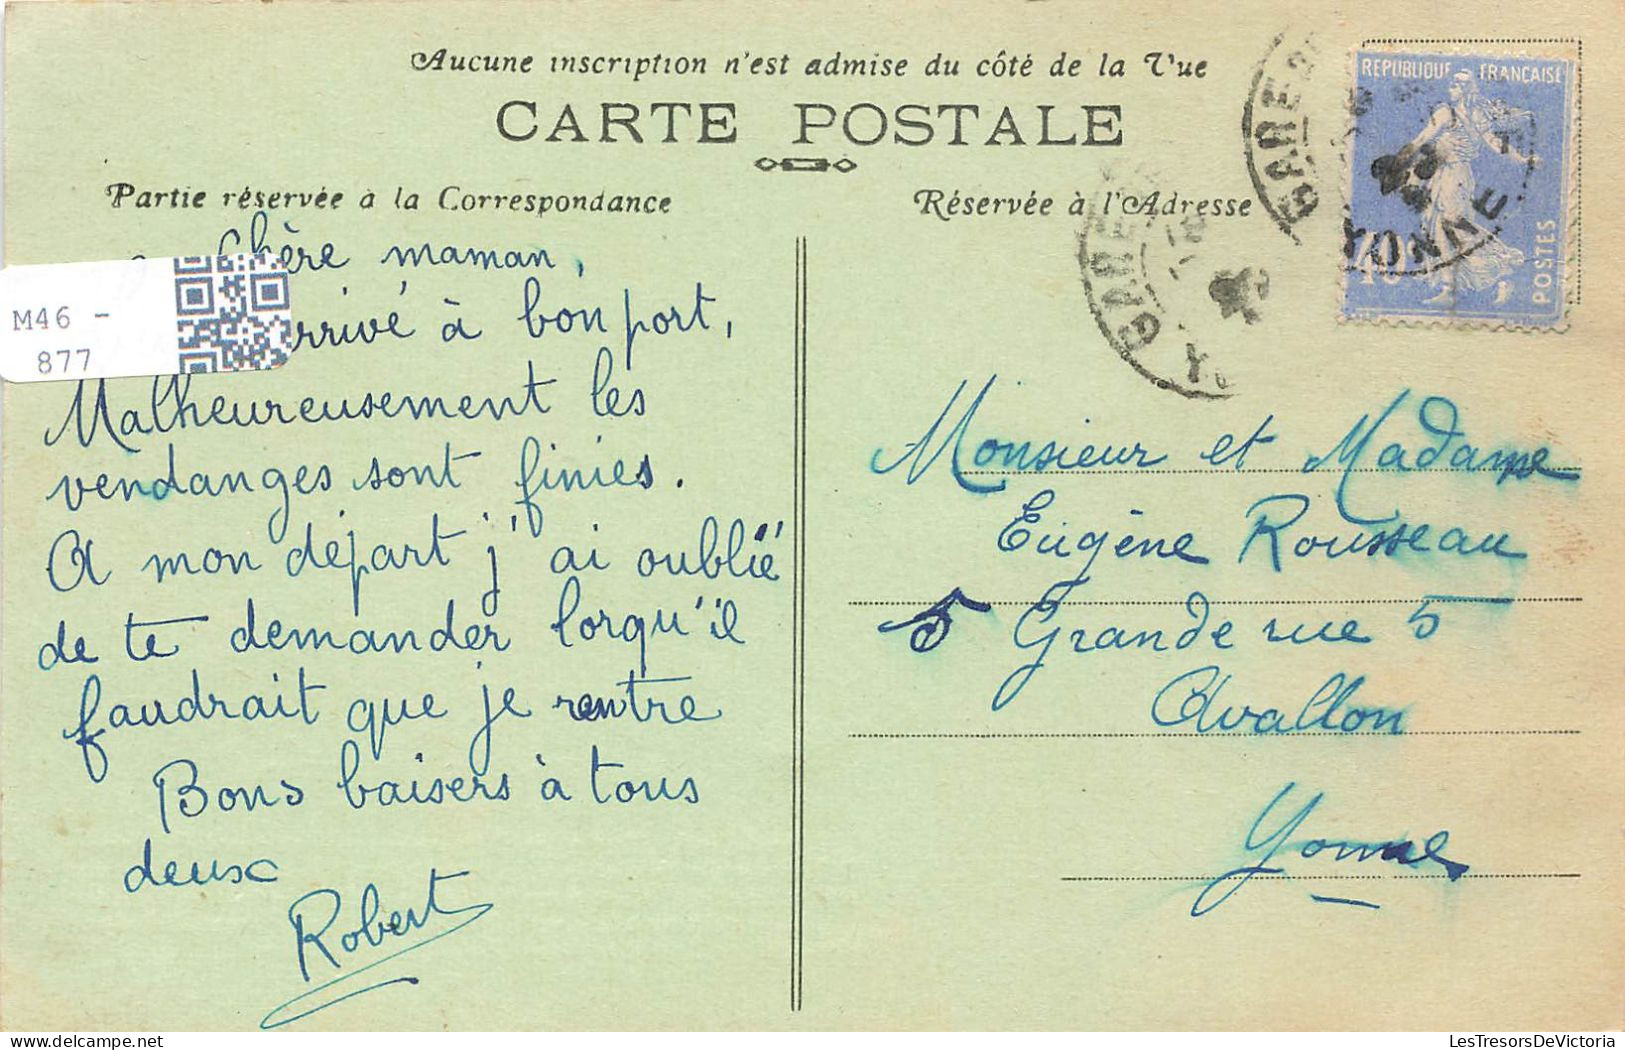 Aucune inscription n'est admise du côté de la Vue
CARTE POSTALE
Partie réservée à la Correspondance
Réservée à l'Adresse
REPUBLIQUE FRANÇAISE
POSTES
YONNE
GARE
M46 -
877
Chère maman,
arrivé à bon port,
Malheureusement les
vendanges sont finies.
A mon départ j'ai oublié
de te demander lorqu'il
faudrait que je rentre
Bons baisers à tous
deux
Robert
Monsieur et Madame
Eugène Rousseau
5 Grande rue 5
Avallon
Yonne
LesTresorsDeVictoria